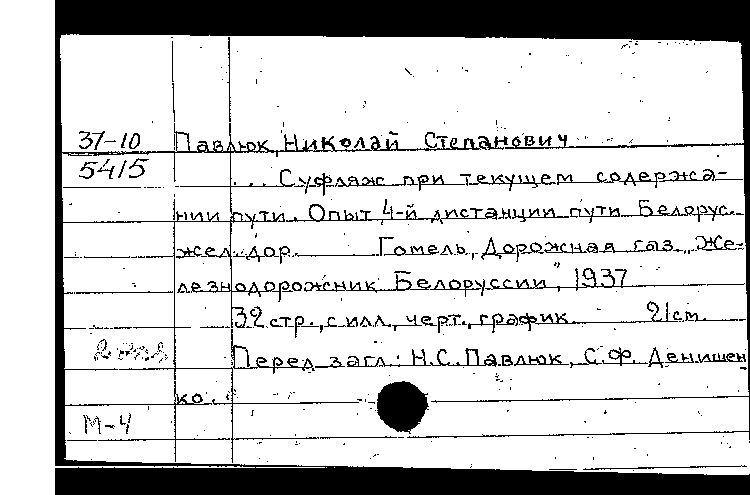 37-10 Павлюк, Николай Степанович
5415
... Суфляж при текущем содержа-
нии пути. Опыт 4-й дистанции пути Белорус.
жел. дор. Гомель, Дорожная газ. „Же-
лезнодорожник Белоруссии", 1937
32 стр., с илл., черт., график. 21 cm.
2 экз.
Перед загл.: Н.С. Павлюк, С.Ф. Денишен
ко.
М-4